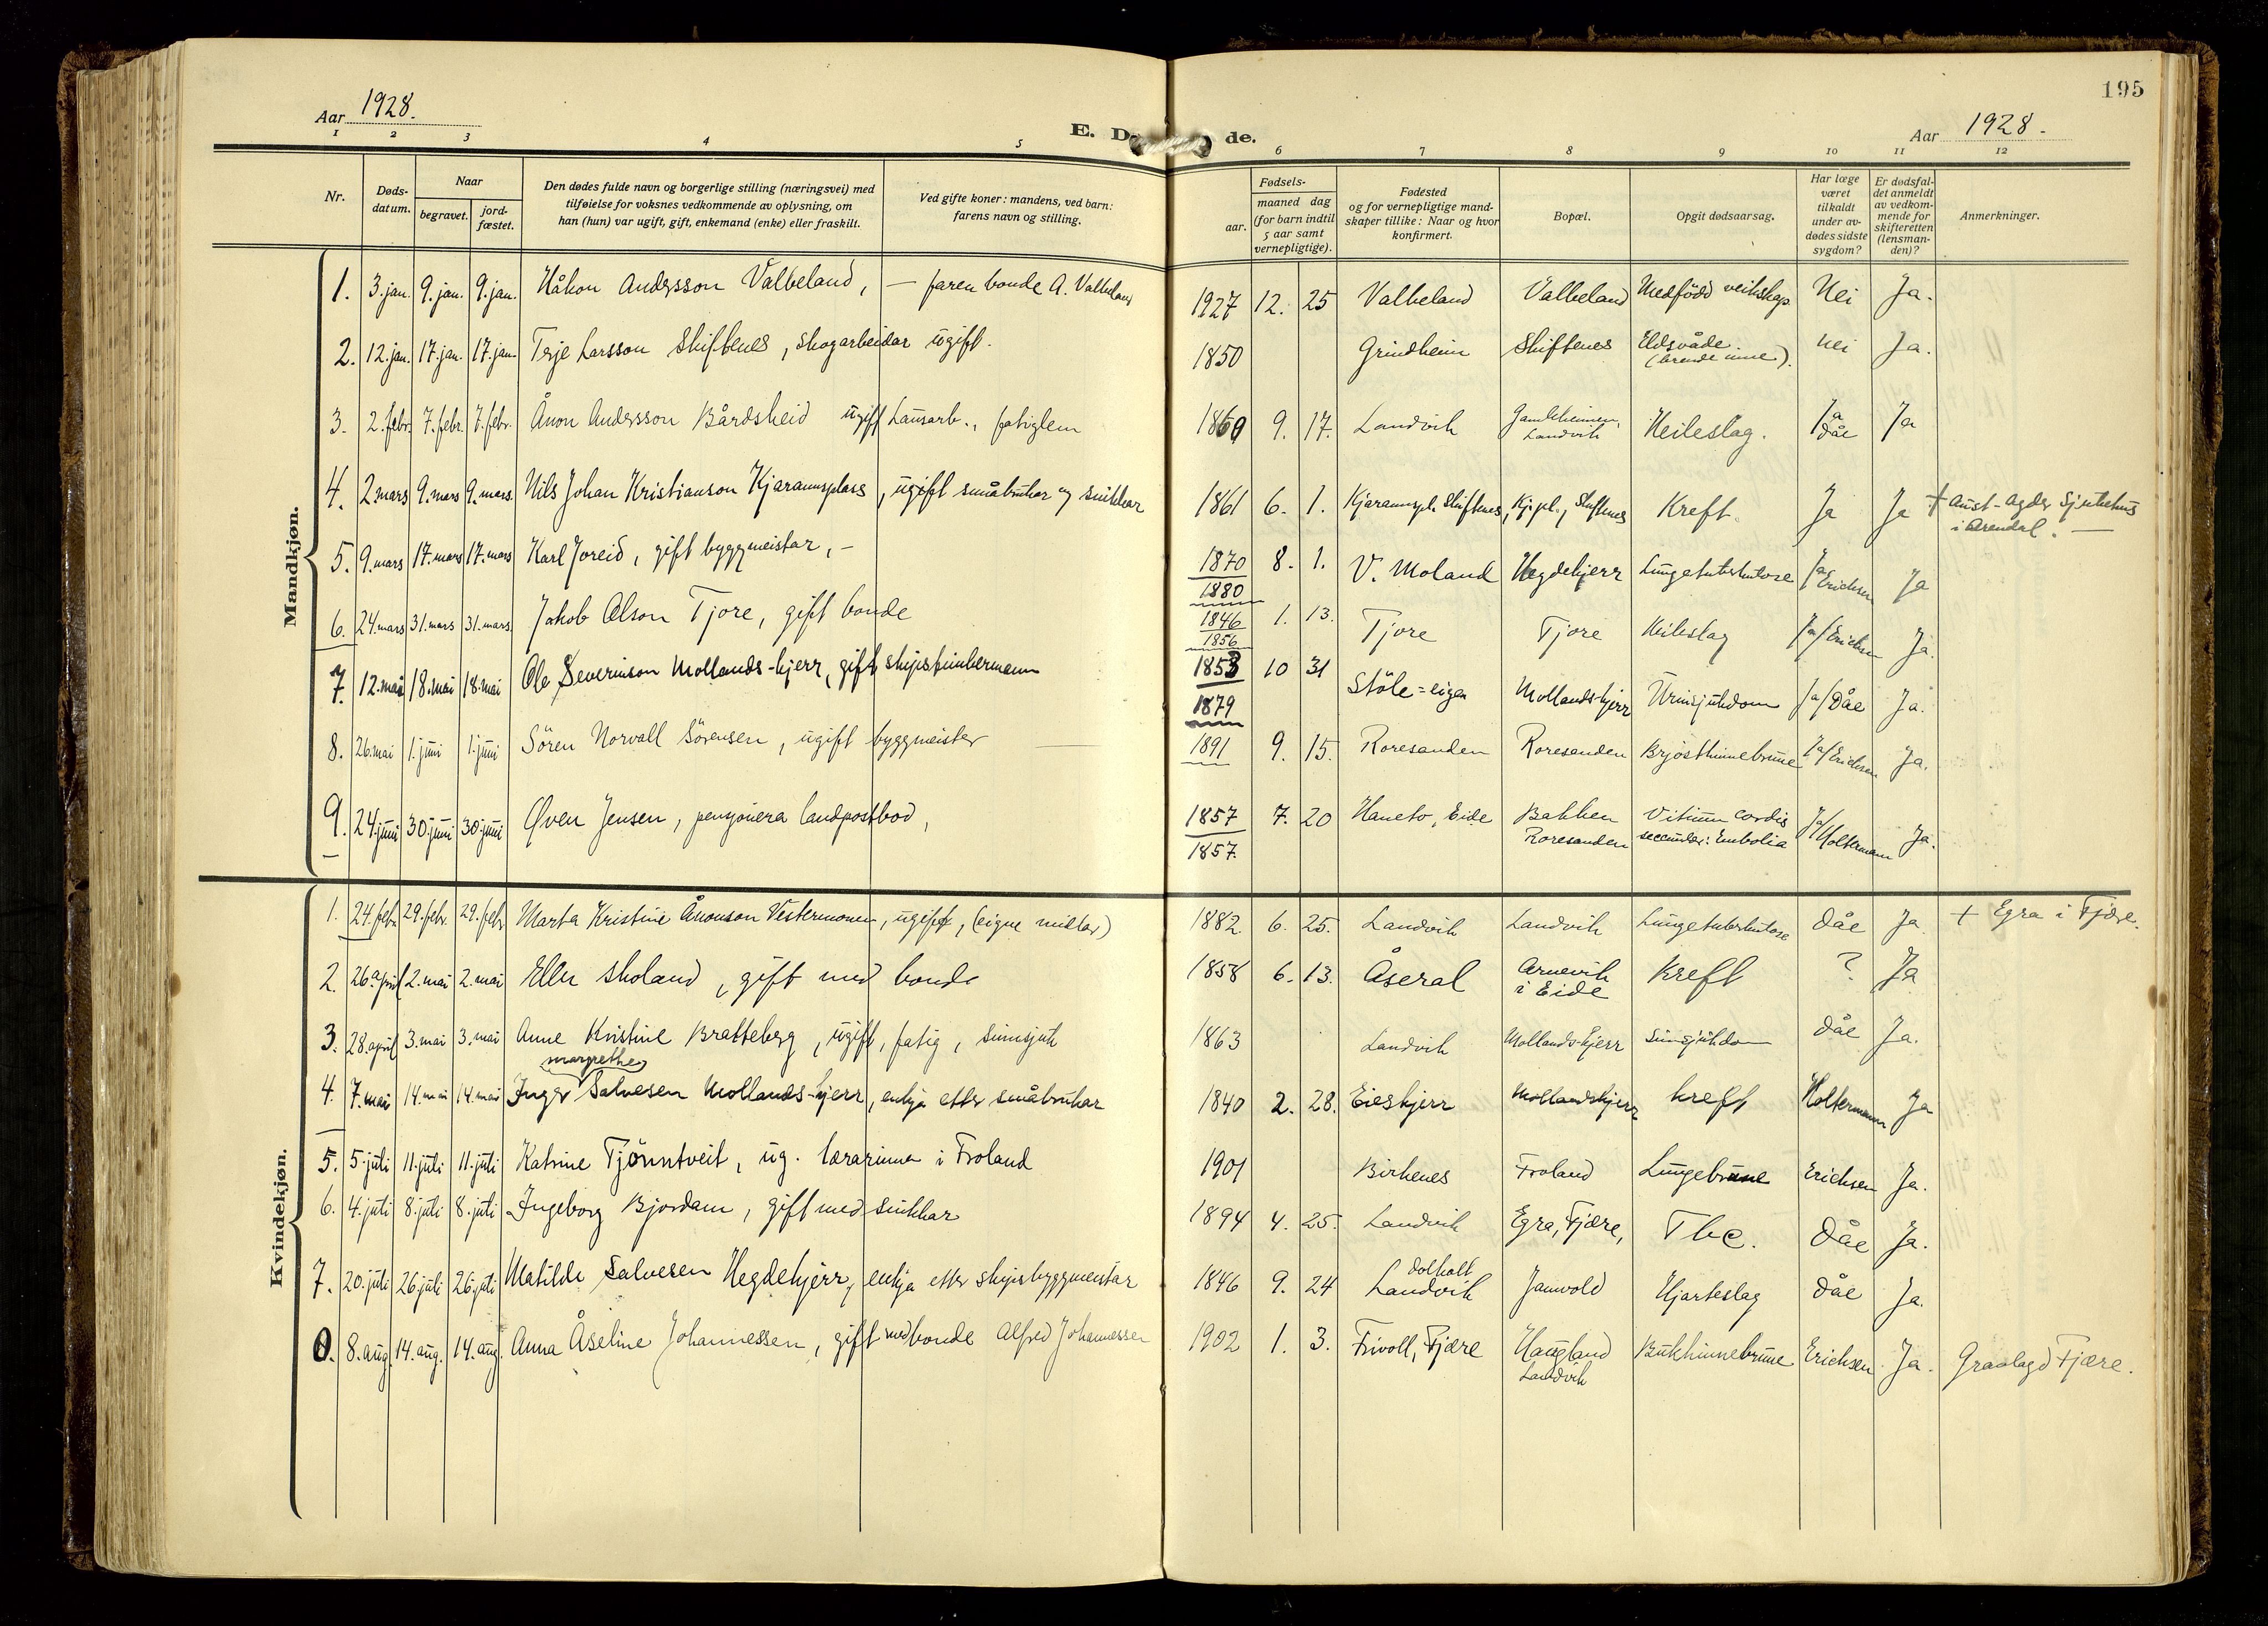 195
Aar 1928.
E. Dø de.
Aar 1928.
1 2 3 4 5 6 7 8 9 10 11 12
Nr.
Døds-datum.
Naar
begravet.
jord-fæstet.
Den dødes fulde navn og borgerlige stilling (næringsvei) med
tilføielse for voksnes vedkommende av oplysning, om
han (hun) var ugift, gift, enkemand (enke) eller fraskilt.
Ved gifte koner: mandens, ved barn:
farens navn og stilling.
Fødsels-
aar.
maaned dag
(for barn indtil
5 aar samt
vernepligtige).
Fødested
og for vernepligtige mand-
skaper tillike: Naar og hvor
konfirmert.
Bopæl.
Opgit dødsaarsag.
Har læge
været
tilkaldt
under av-
dødes sidste
sygdom?
Er dødsfal-
det anmeldt
av vedkom-
mende for
skifteretten
(lensman-
den)?
Anmerkninger.
Mandkjøn.
1. 3. jan. 9. jan. 9. jan. Håkon Andersson Valbeland, — faren bonde A. Valbeland 1927 12. 25 Valbeland Valbeland Medfödd veikskap Nei Ja.
2. 12. jan. 17. jan. 17. jan. Terje Larsson Skiftenes, skogarbeidar ugift. 1850 Grindheim Skiftenes Eldsvåde. (brende inne). Nei Ja.
3. 2. febr. 7. febr. 7. febr. Ånon Andersson Bårdsheid ugift Lausarb., fatiglem 1869 9. 17. Landvik Gamleheimen, Landvik Heileslag. Ja Dåe Ja
4. 2 mars 9. mars 9. mars. Nils Johan Kristianson Kjerramsplass, ugift småbrukar og snikkar 1861 6. 1. Kjaramspl. Skiftenes, Kj.pl., Skiftenes Kreft. Ja Ja † Aust-Agder Sjukehus
i Arendal. —
5. 9. mars 17. mars 17. mars Karl Joreid, gift byggmeistar, — 1870 1880 8. 1. V. Moland Hegdekjerr Lungetuberkulose Ja/Erichsen Ja
6. 24. mars 31. mars 31. mars. Jakob Olson Tjore, gift bonde 1846 1856 1. 13. Tjore Tjore Heileslag Ja/Erichsen Ja.
7. 12. mai 18. mai 18. mai Ole Severinson Mollands-kjerr, gift skipstimbermann 1853 1879 10 31 Stöle=eigen Mollandskjerr Urinsjukdom Ja/Dåe Ja.
8. 26. mai 1. juni 1. juni Sören Norvall Sörensen, ugift byggmeister 1891 9. 15. Roresanden Roresanden Brjosthinnebrune Ja/Erichsen Ja.
9. 24. juni 30. juni 30. juni Öven Jensen, pensjonera landpostbod, 1857 1857. 7. 20 Haneto, Eide Bakken Roresanden Vitium cordis seccundær: Embolia Ja/Holtermann Ja.
Kvindekjøn.
1. 24. febr. 29. febr. 29. febr Marta Kristine Ånonson Vestermonen, ugift, (eigne midlar) 1882. 6. 25. Landvik Landvik Lungetuberkulose Dåe Ja † Egra i Fjære.
2. 26 april 2. mai 2. mai Ellen Skoland, gift med bonde 1858 6. 13. Åseral Arnevik i Eide Kreft ? Ja
3. 28. april 3. mai 3. mai Anne Kristine Bratteberg, ugift, fatig, sinnsjuk 1863 Landvik Mollands-kjerr Sinnsjukdom Dåe Ja.
margrethe
4. 7. mai 14. mai 14. mai Inger Salvesen Mollands-kjerr, enkja etter småbrukar 1840 2. 28. Eieskjerr Mollandskjerr Kreft Holtermann Ja
5. 5. juli 11. juli 11. juli Katrine Tjönntveit, ug. lærarinna i Froland 1901 Birkenes Froland Lungebrune Erichsen Ja.
6. 4. juli 8. juli 8. juli Ingeborg Bjordam, gift med snikkar 1894 4. 25. Landvik Egra, Fjære, Tbc. Dåe Ja.
7. 20. juli 26. juli 26. juli Matilde Salvesen Hegdekjerr, enkja etter skipsbyggmeistar 1846 9. 24 Dolholt Landvik Jamvold Hjarteslag Dåe Ja.
8. 8. aug. 14. aug. 14. aug. Anna Åseline Johannessen, gift med bonde Alfred Johannessen 1902 1. 3. Frivoll, Fjære Haugland Landvik Bukhinnebrune Erichsen Ja. Gravlagd Fjære.